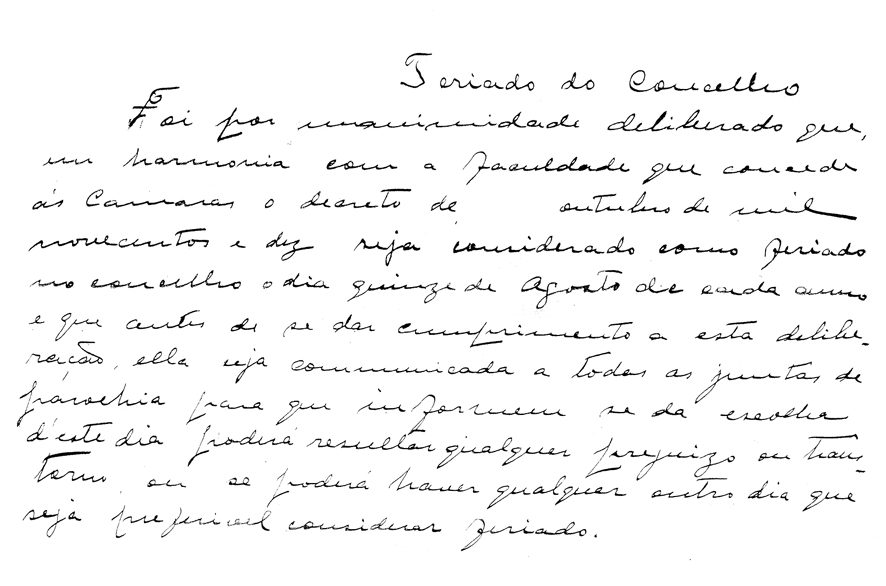 Feriado do Concelho
Foi por unanimidade deliberado que,
em harmonia com a faculdade que concede
ás Camaras o decreto de outubro de mil
novecentos e dez seja considerado como feriado
no concelho o dia quinze de Agosto de cada anno
e que antes de se dar cumprimento a esta delibe-
ração, ella seja communicada a todas as juntas de
parochia para que informem se da escolha
d'este dia poderá resultar qualquer prejuizo ou trans-
torno, ou se poderá haver qualquer outro dia que
seja preferivel considerar feriado.